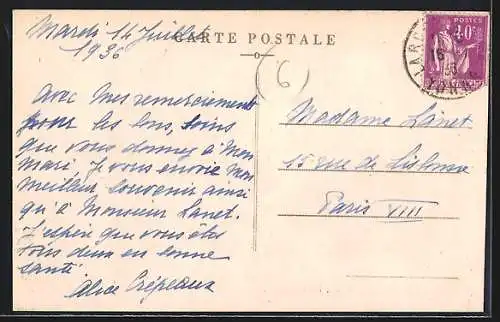 Mardi 14 Juillet
1936
CARTE POSTALE
POSTES
40c
(6)
Avec mes remerciements
pour les bons soins
que vous donnez à mon
mari. Je vous envoie mon
meilleur souvenir ainsi
qu'à Monsieur Lanet.
J'espère que vous êtes
tous deux en bonne
santé
Alice Crépeaux
Madame Lanet
15 rue de Lisbonne
Paris VIII